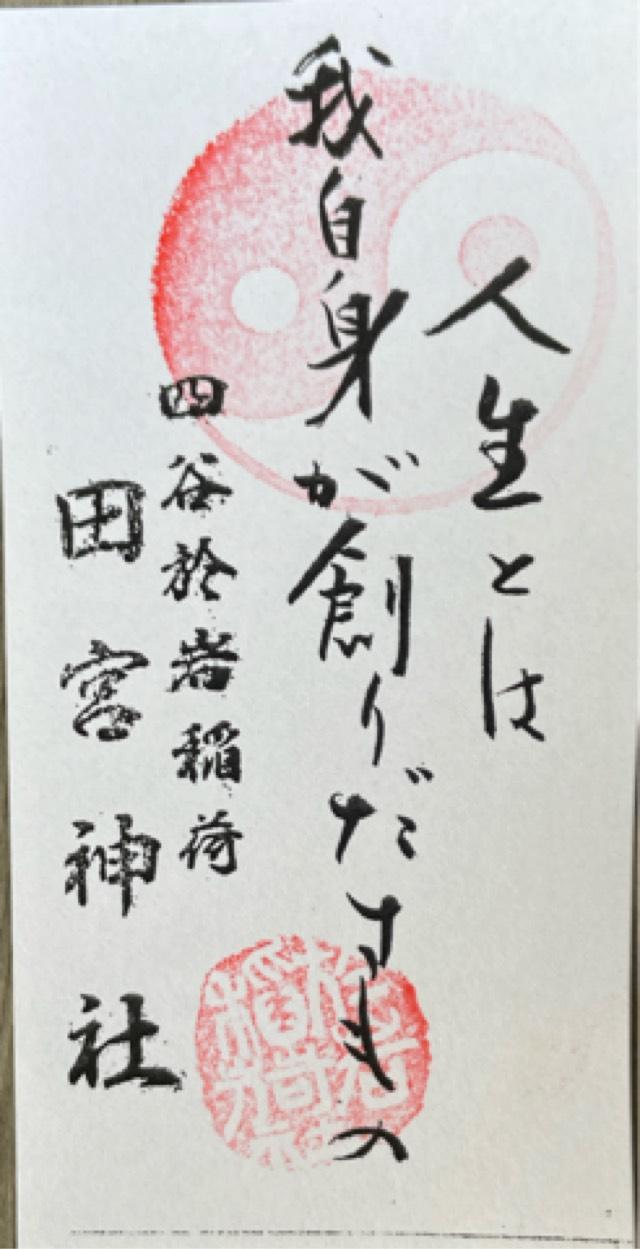 人生とは
我自身が創りだすもの
四谷於岩稲荷
田宮神社